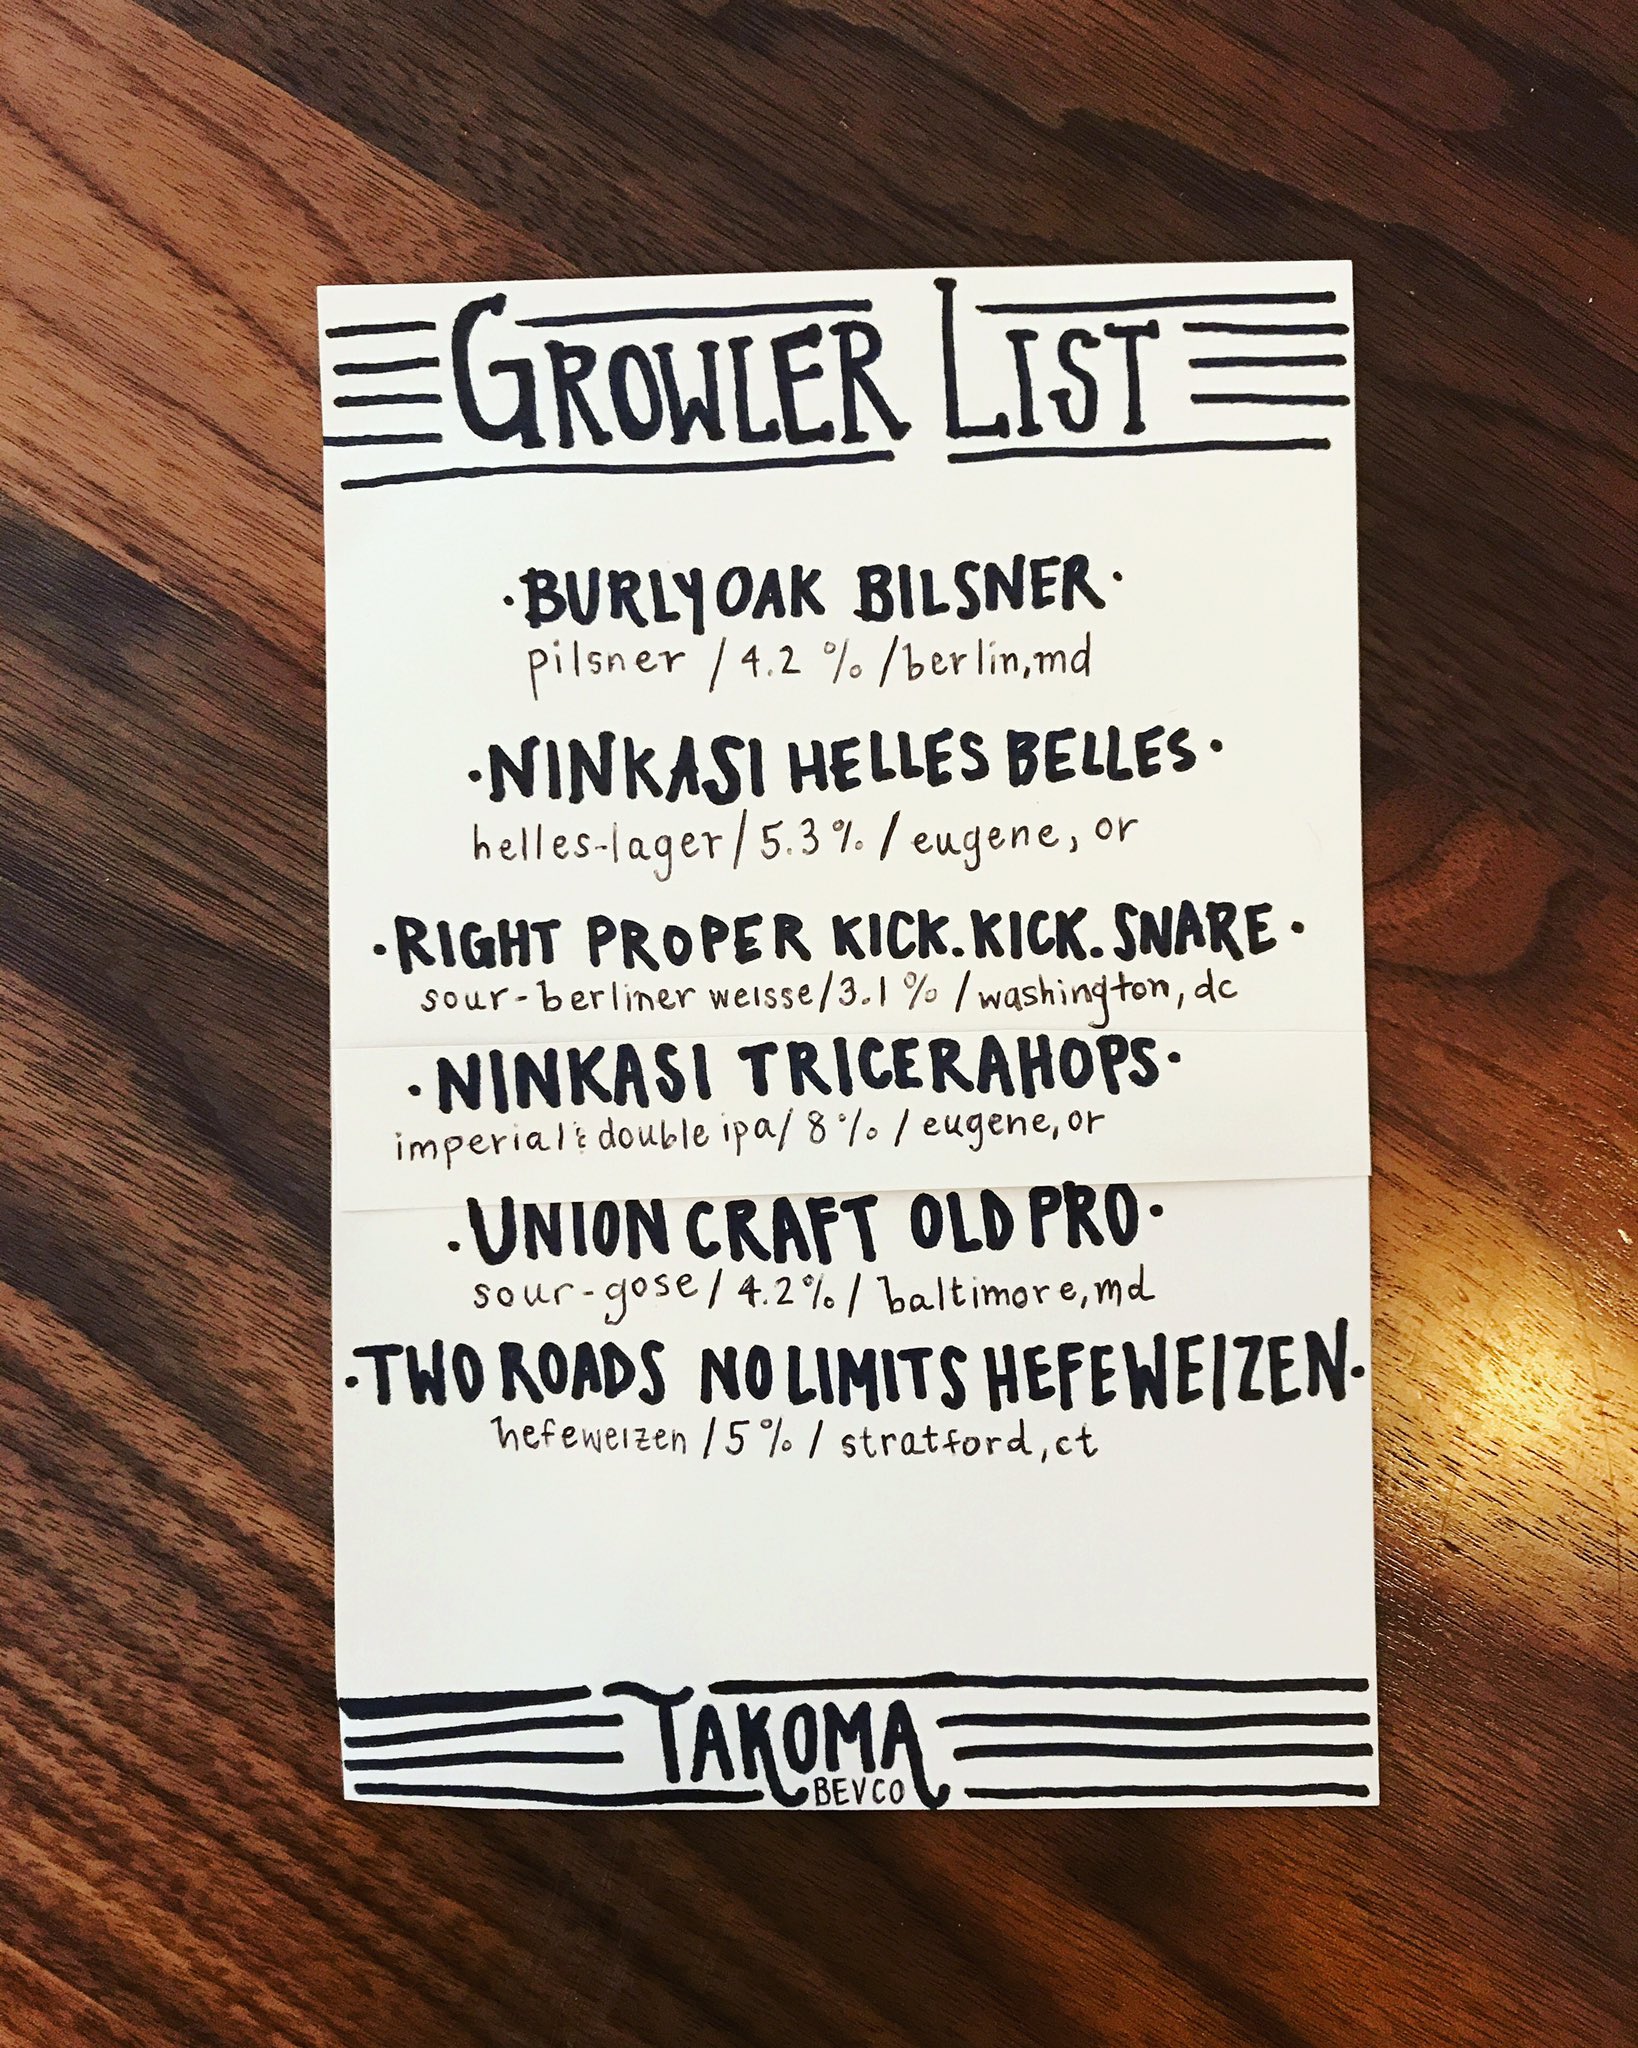 GROWLER LIST
·BURLY OAK BILSNER·
pilsner / 4.2 % / berlin, md
·NINKASI HELLES BELLES·
helles-lager / 5.3 % / eugene, or
·RIGHT PROPER KICK.KICK.SNARE·
sour-berliner weisse / 3.1 % / washington, dc
·NINKASI TRICERAHOPS·
imperial & double ipa / 8 % / eugene, or
·UNION CRAFT OLD PRO·
sour-gose / 4.2 % / baltimore, md
·TWO ROADS NO LIMITS HEFEWEIZEN·
hefeweizen / 5 % / stratford, ct
TAKOMA
BEVCO